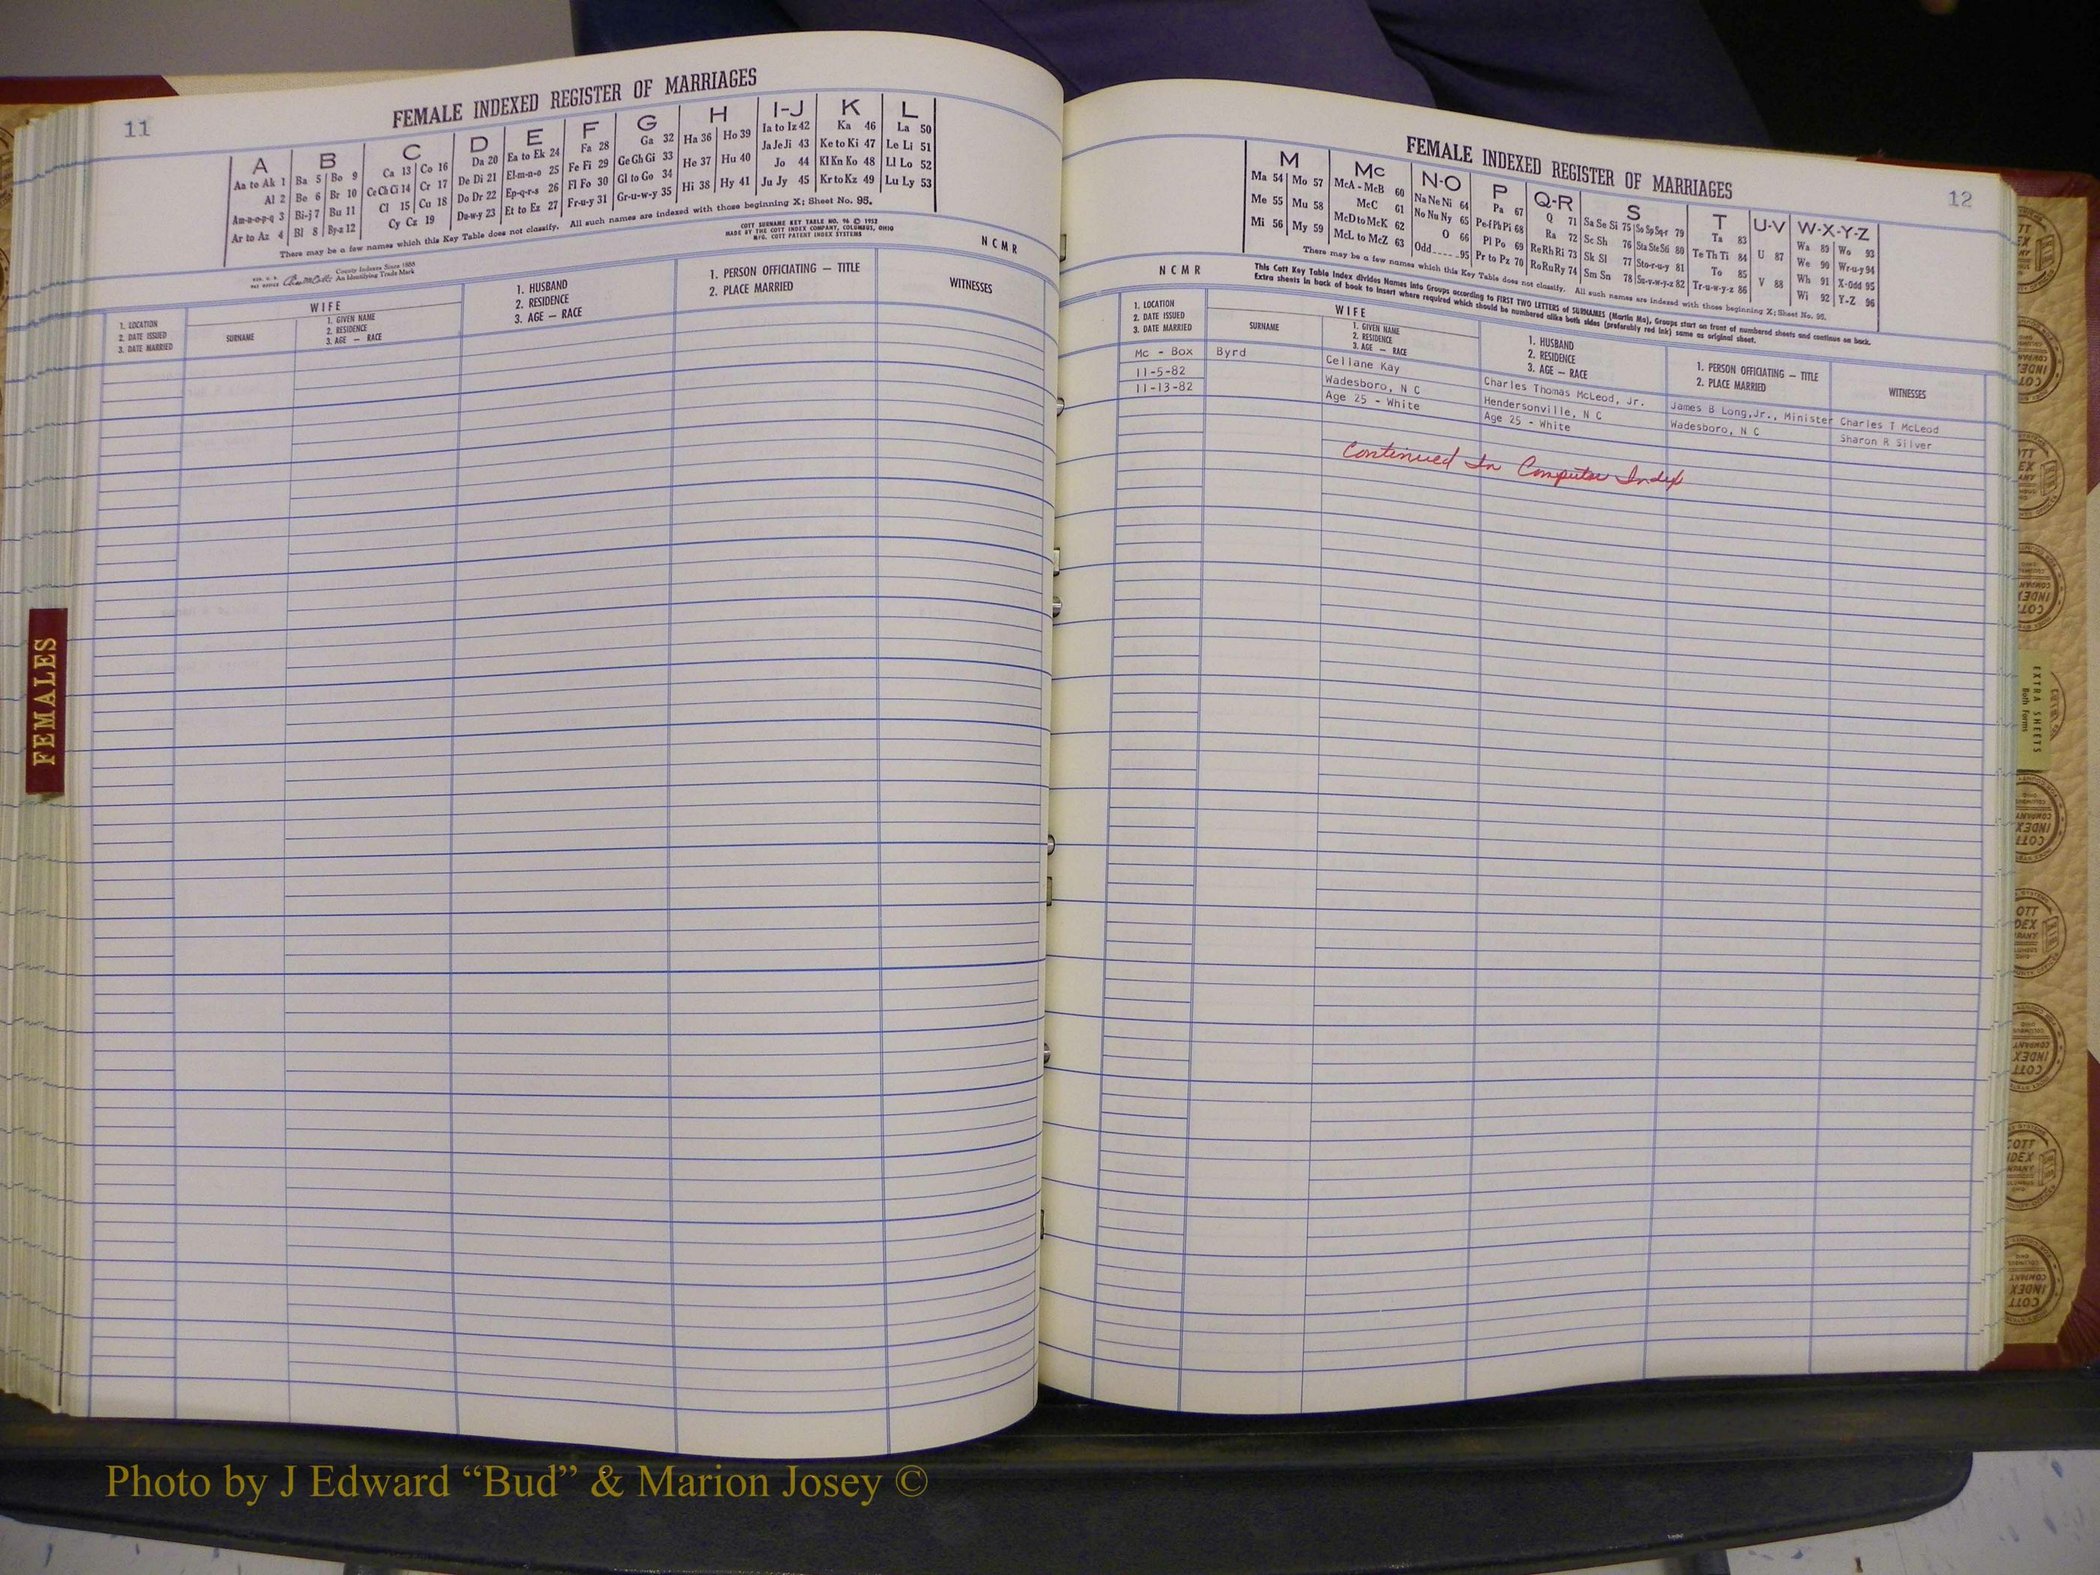 11
FEMALE INDEXED REGISTER OF MARRIAGES
A B C D E F G H I-J K L
Aa to Ak 1 Ba 5 Bo 9 Ca 13 Co 16 Da 20 Ea to Ek 24 Fa 28 Ga 32 Ha 36 Ho 39 Ia to Iz 42 Ka 46 La 50
Al 2 Be 6 Br 10 Ce Ch Ci 14 Cr 17 De Di 21 El-m-n-o 25 Fe Fi 29 Ge Gh Gi 33 He 37 Hu 40 Ja Je Ji 43 Ke to Ki 47 Le Li 51
Am-n-o-p-q 3 Bi-j 7 Bu 11 Cl 15 Cu 18 Do Dr 22 Ep-q-r-s 26 Fl Fo 30 Gl to Go 34 Hi 38 Hy 41 Jo 44 Kl Kn Ko 48 Ll Lo 52
Ar to Az 4 Bl 8 By-z 12 Cy Cz 19 Du-w-y 23 Et to Ez 27 Fr-u-y 31 Gr-u-w-y 35 Ju Jy 45 Kr to Kz 49 Lu Ly 53
There may be a few names which this Key Table does not classify. All such names are indexed with those beginning X; Sheet No. 95.
County Indexes Since 1888
An Identifying Trade Mark
COTT SURNAME KEY TABLE NO. 96 © 1952
MADE BY THE COTT INDEX COMPANY, COLUMBUS, OHIO
MFG. COTT PATENT INDEX SYSTEMS
N C M R
1. LOCATION
2. DATE ISSUED
3. DATE MARRIED
WIFE
SURNAME
1. GIVEN NAME
2. RESIDENCE
3. AGE — RACE
1. HUSBAND
2. RESIDENCE
3. AGE — RACE
1. PERSON OFFICIATING — TITLE
2. PLACE MARRIED
WITNESSES
FEMALES
12
FEMALE INDEXED REGISTER OF MARRIAGES
M Mc N-O P Q-R S T U-V W-X-Y-Z
Ma 54 Mo 57 McA - McB 60 Na Ne Ni 64 Pa 67 Q 71 Sa Se Si 75 So Sp Sq-r 79 Ta 83 U 87 Wa 89 Wo 93
Me 55 Mu 58 McC 61 No Nu Ny 65 Pe-f Ph Pi 68 Ra 72 Sc Sh 76 Sta Ste Sti 80 Te Th Ti 84 V 88 We 90 Wr-u-y 94
Mi 56 My 59 McD to McK 62 O 66 Pl Po 69 Re Rh Ri 73 Sk Sl 77 Sto-r-u-y 81 To 85 Wh 91 X-Odd 95
McL to McZ 63 Odd......95 Pr to Pz 70 Ro Ru Ry 74 Sm Sn 78 Su-v-w-y-z 82 Tr-u-w-y-z 86 Wi 92 Y-Z 96
There may be a few names which this Key Table does not classify. All such names are indexed with those beginning X; Sheet No. 95.
N C M R
This Cott Key Table Index divides Names into Groups according to FIRST TWO LETTERS of SURNAMES (Martin Ma), Groups start on front of numbered sheets and continue on back.
Extra sheets in back of book to insert where required which should be numbered alike both sides (preferably red ink) same as original sheet.
1. LOCATION
2. DATE ISSUED
3. DATE MARRIED
WIFE
SURNAME
1. GIVEN NAME
2. RESIDENCE
3. AGE — RACE
1. HUSBAND
2. RESIDENCE
3. AGE — RACE
1. PERSON OFFICIATING — TITLE
2. PLACE MARRIED
WITNESSES
Mc - Box Byrd Cellane Kay Charles Thomas McLeod, Jr. James B Long,Jr., Minister Charles T McLeod
11-5-82 Wadesboro, N C Hendersonville, N C Wadesboro, N C Sharon R Silver
11-13-82 Age 25 - White Age 25 - White
Continued In Computer Index
EXTRA SHEETS
Both Forms
Photo by J Edward “Bud” & Marion Josey ©